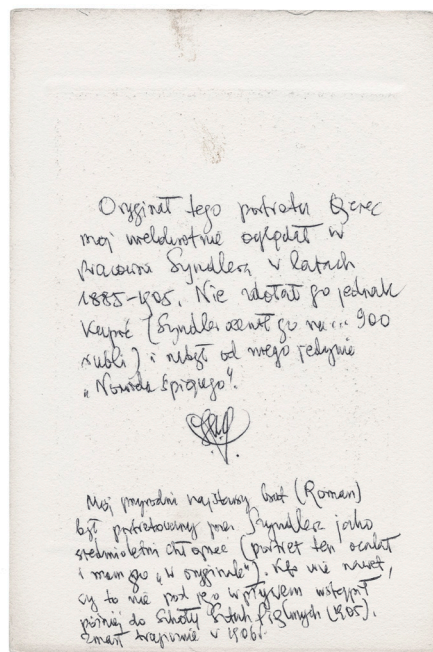 Oryginał tego portretu Ojciec
mój wielokrotnie oglądał w
pracowni Syndlera w latach
1885-1905. Nie zdołał go jednak
kupić (Syndler ocenił go na... 900
rubli) i nabył od niego jedynie
„Norwida śpiącego".
Mój przyrodni najstarszy brat (Roman)
był portretowany przez Syndlera jako
siedmioletni chłopiec (portret ten ocalał
i mam go „w oryginale"). Kto wie nawet,
czy to nie pod jego wpływem wstąpił
później do Szkoły Sztuk Pięknych (1905).
Zmarł tragicznie w 1906.